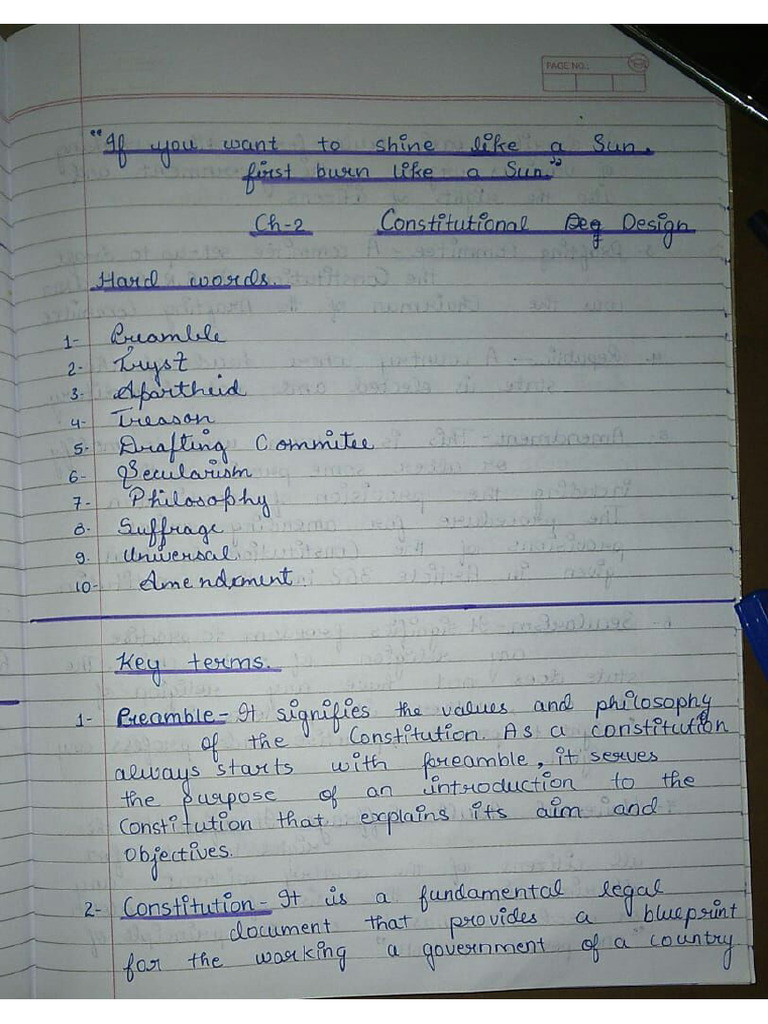 PAGE NO.:
"If you want to shine like a Sun.
first burn like a Sun"
Ch-2 Constitutional Design
Hard words.
1- Preamble
2- Tryst
3- Apartheid
4- Treason
5- Drafting Commitee
6- Secularism
7- Philosophy
8- Suffrage
9. Universal
10- Amendment.
Key terms.
1- Preamble - It signifies the values and philosophy
of the Constitution. As a constitution
always starts with foreamble, it serves
the purpose of an introduction to the
Constitution that explains its aim and
Objectives.
2- Constitution - It is a fundamental legal
document that provides a blueprint
for the working a government of a country